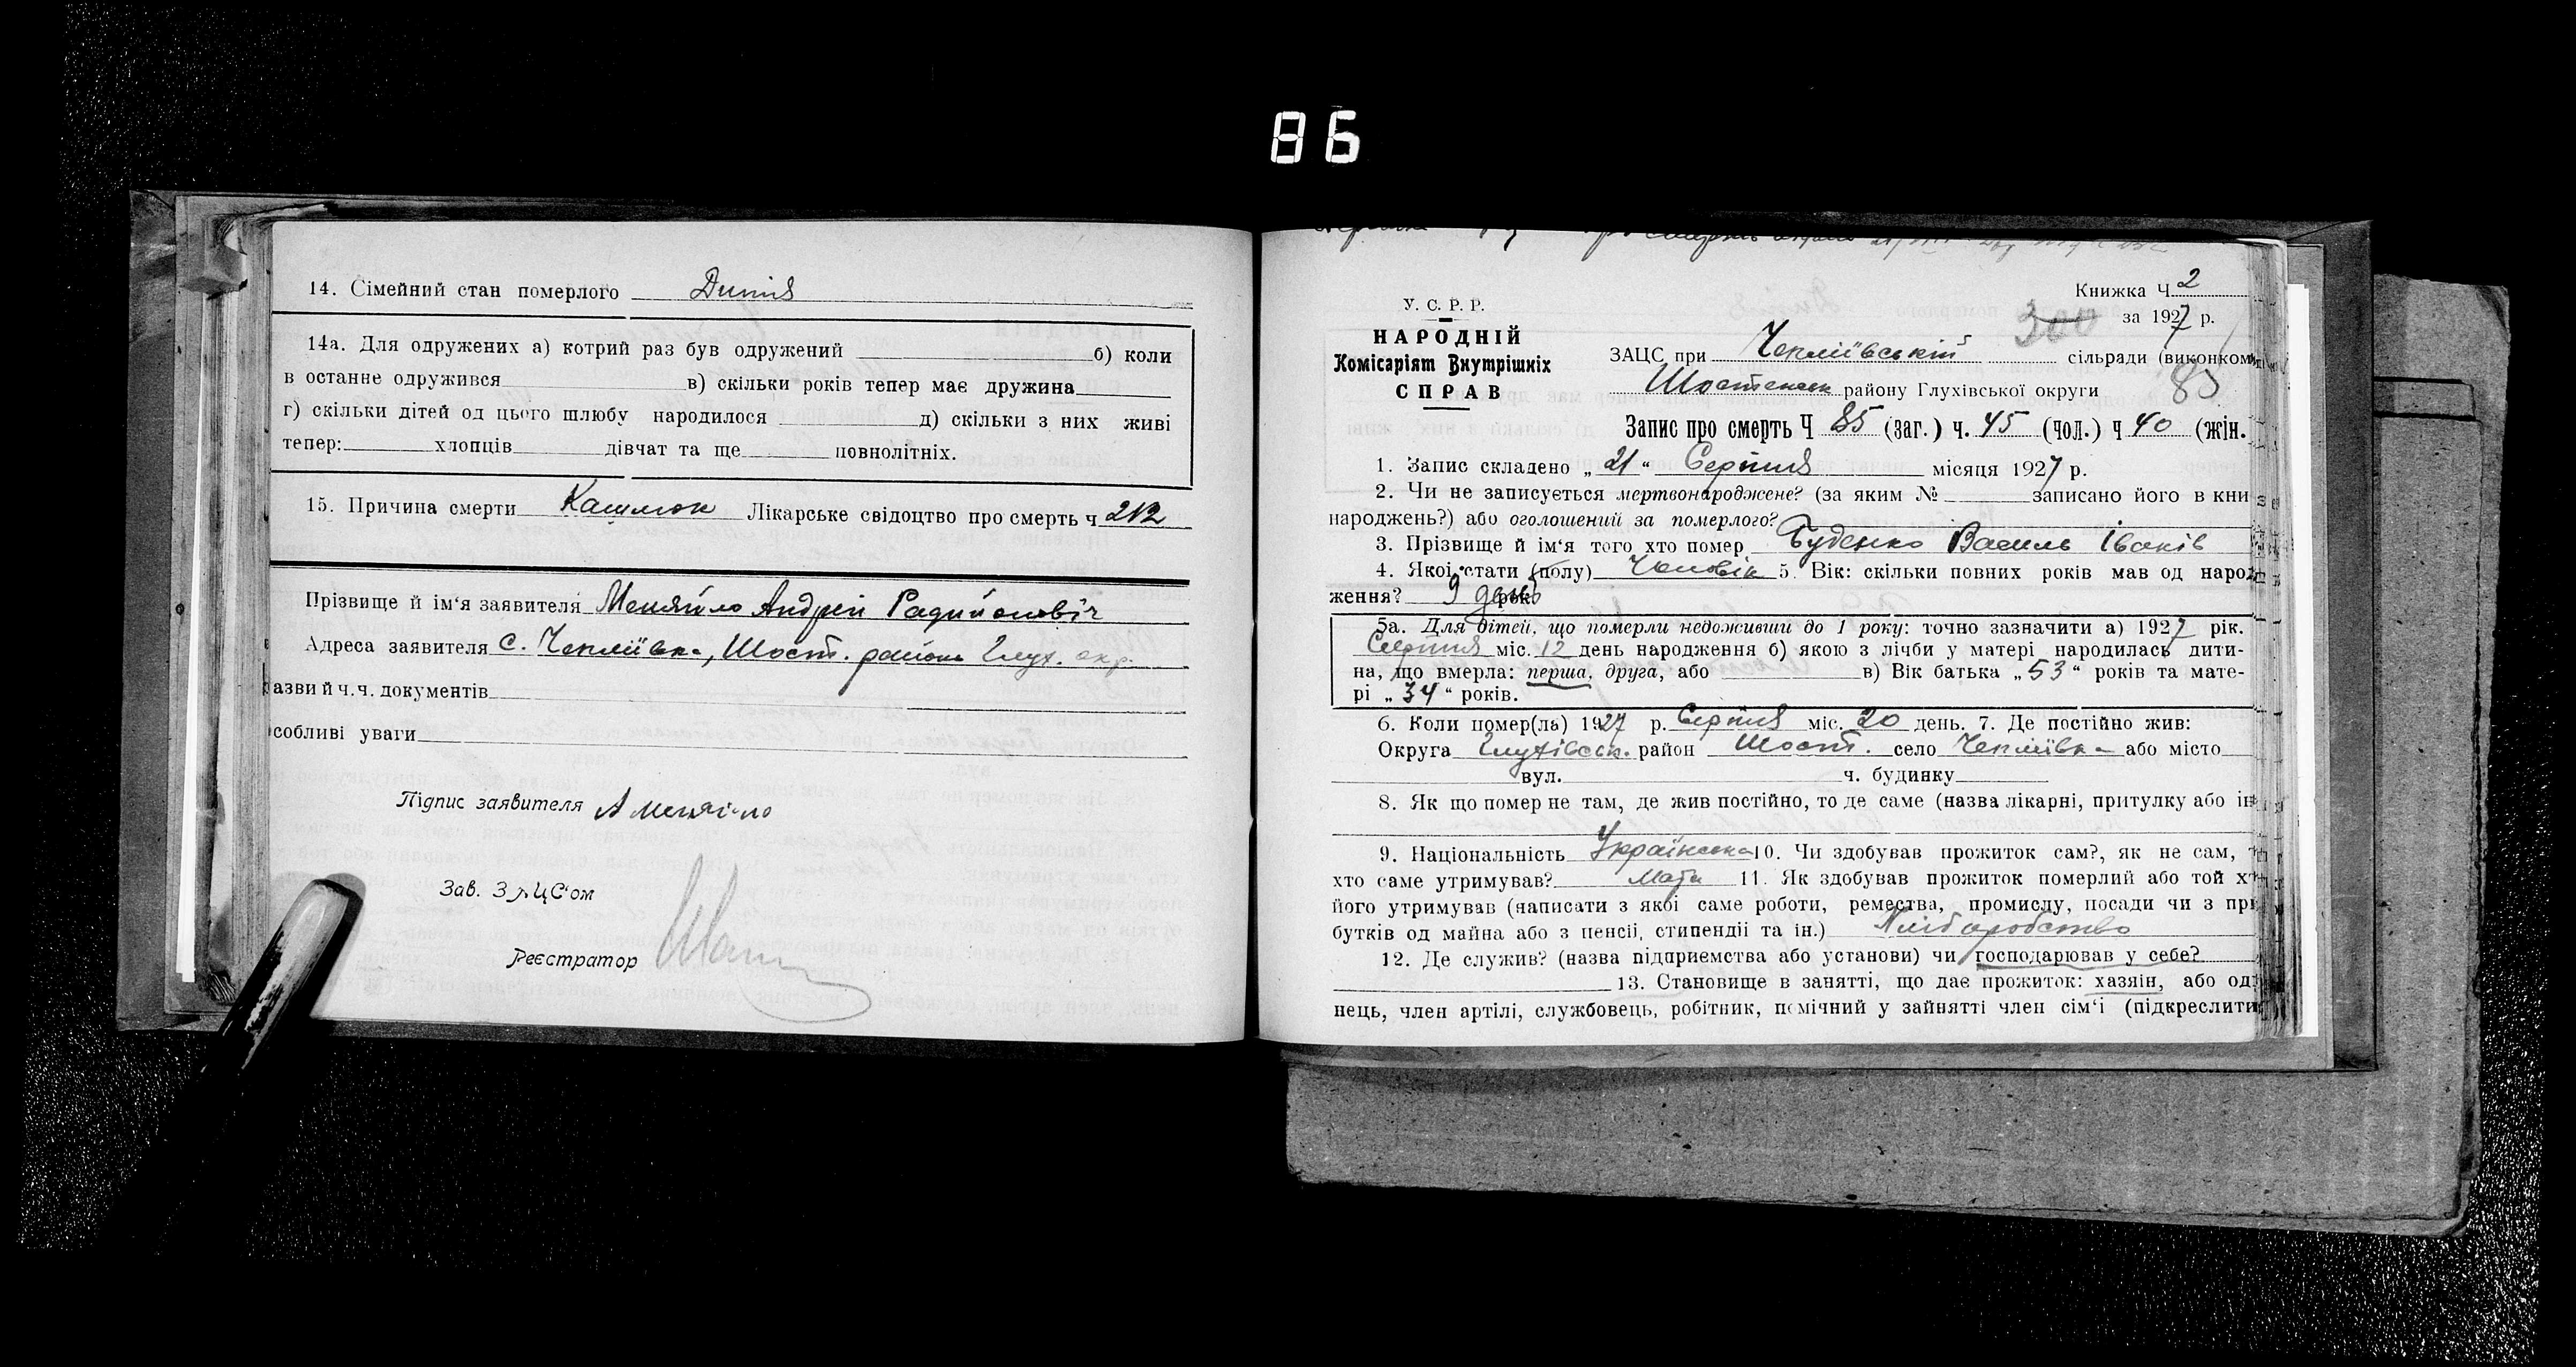 86
14. Сімейний стан померлого Дитя
14а. Для одружених а) котрий раз був одружений б) коли
в останне одружився в) скільки років тепер має дружина
г) скільки дітей од цього шлюбу народилося д) скільки з них живі
тепер: хлопців дівчат та ще повнолітніх.
15. Причина смерти Кашлюк Лікарське свідоцтво про смерть ч 212
Прізвище й ім'я заявителя Меняйло Андрій Радийонович
Адреса заявителя с. Чепліївка, Шост. района Глух. окр.
азви й ч.ч. документів
собливі уваги
Підпис заявителя А Меняйло
Зав. ЗАЦС'ом
Реєстратор
Книжка Ч 2
300 за 1927 р.
У. С. Р. Р.
НАРОДНІЙ
Комісаріят Внутрішніх
СПРАВ
ЗАЦС при Чепліївській сільради (виконком
Шостенськ району Глухівської округи 85
Запис про смерть Ч 85 (заг.) ч. 45 (чол.) ч 40 (жін.
1. Запис складено „21“ Серпня місяця 1927 р.
2. Чи не записується мертвонароджене? (за яким № записано його в кни
народжень?) або оголошений за померлого?
3. Прізвище й ім'я того хто помер Буденко Василь Іванів
4. Якої стати (полу) Чоловік 5. Вік: скільки повних років мав од народ
ження? 9 день
5а. Для дітей, що померли недоживши до 1 року: точно зазначити а) 1927 рік.
Серпня міс. 12 день народження б) якою з лічби у матері народилась дити-
на, що вмерла: перша, друга, або в) Вік батька „53“ років та мате-
рі „34“ років.
6. Коли помер(ла) 1927 р. Серпня міс. 20 день. 7. Де постійно жив:
Округа Глухівськ. район Шост. село Чепліївка або місто
вул. ч. будинку
8. Як що помер не там, де жив постійно, то де саме (назва лікарні, притулку або ін
9. Національність Українська 10. Чи здобував прожиток сам?, як не сам,
хто саме утримував? Мати 11. Як здобував прожиток померлий або той х
його утримував (написати з якої саме роботи, ремества, промислу, посади чи з при
бутків од майна або з пенсії, стипендії та ін.) Хліборобство
12. Де служив? (назва підприємства або установи) чи господарював у себе?
13. Становище в занятті, що дає прожиток: хазяін, або од
нець, член артілі, службовець, робітник, помічний у зайнятті член сім'і (підкреслити